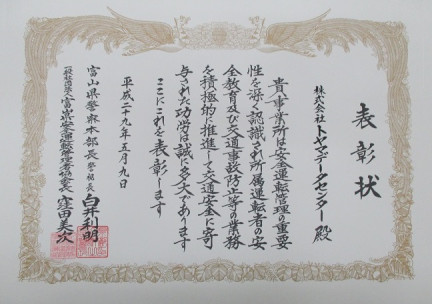 表彰状
株式会社トヤマデータセンター殿
貴事業所は安全運転管理の重要
性を深く認識され所属運転者の安
全教育及び交通事故防止等の業務
を積極的に推進して交通安全に寄
与された功労は誠に多大であります
ここにこれを表彰します
平成二十九年五月九日
富山県警察本部長 警視長 白井利明
一般社団法人富山県安全運転管理者協会会長 窪田美次